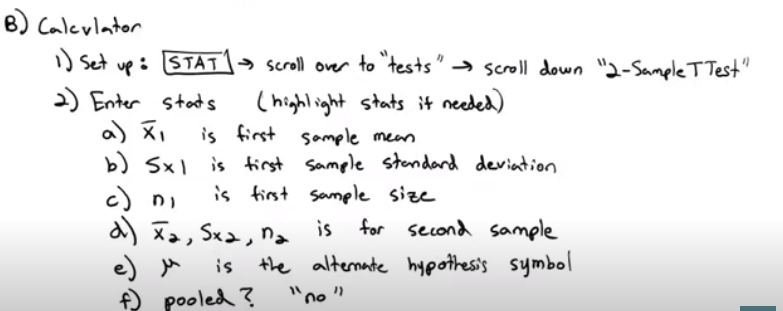 B) Calculator
1) Set up: STAT → scroll over to "tests" → scroll down "2-SampleTTest"
2) Enter stats (highlight stats if needed)
a) x̄1 is first sample mean
b) Sx1 is first sample standard deviation
c) n1 is first sample size
d) x̄2, Sx2, n2 is for second sample
e) μ is the alternate hypothesis symbol
f) pooled? "no"